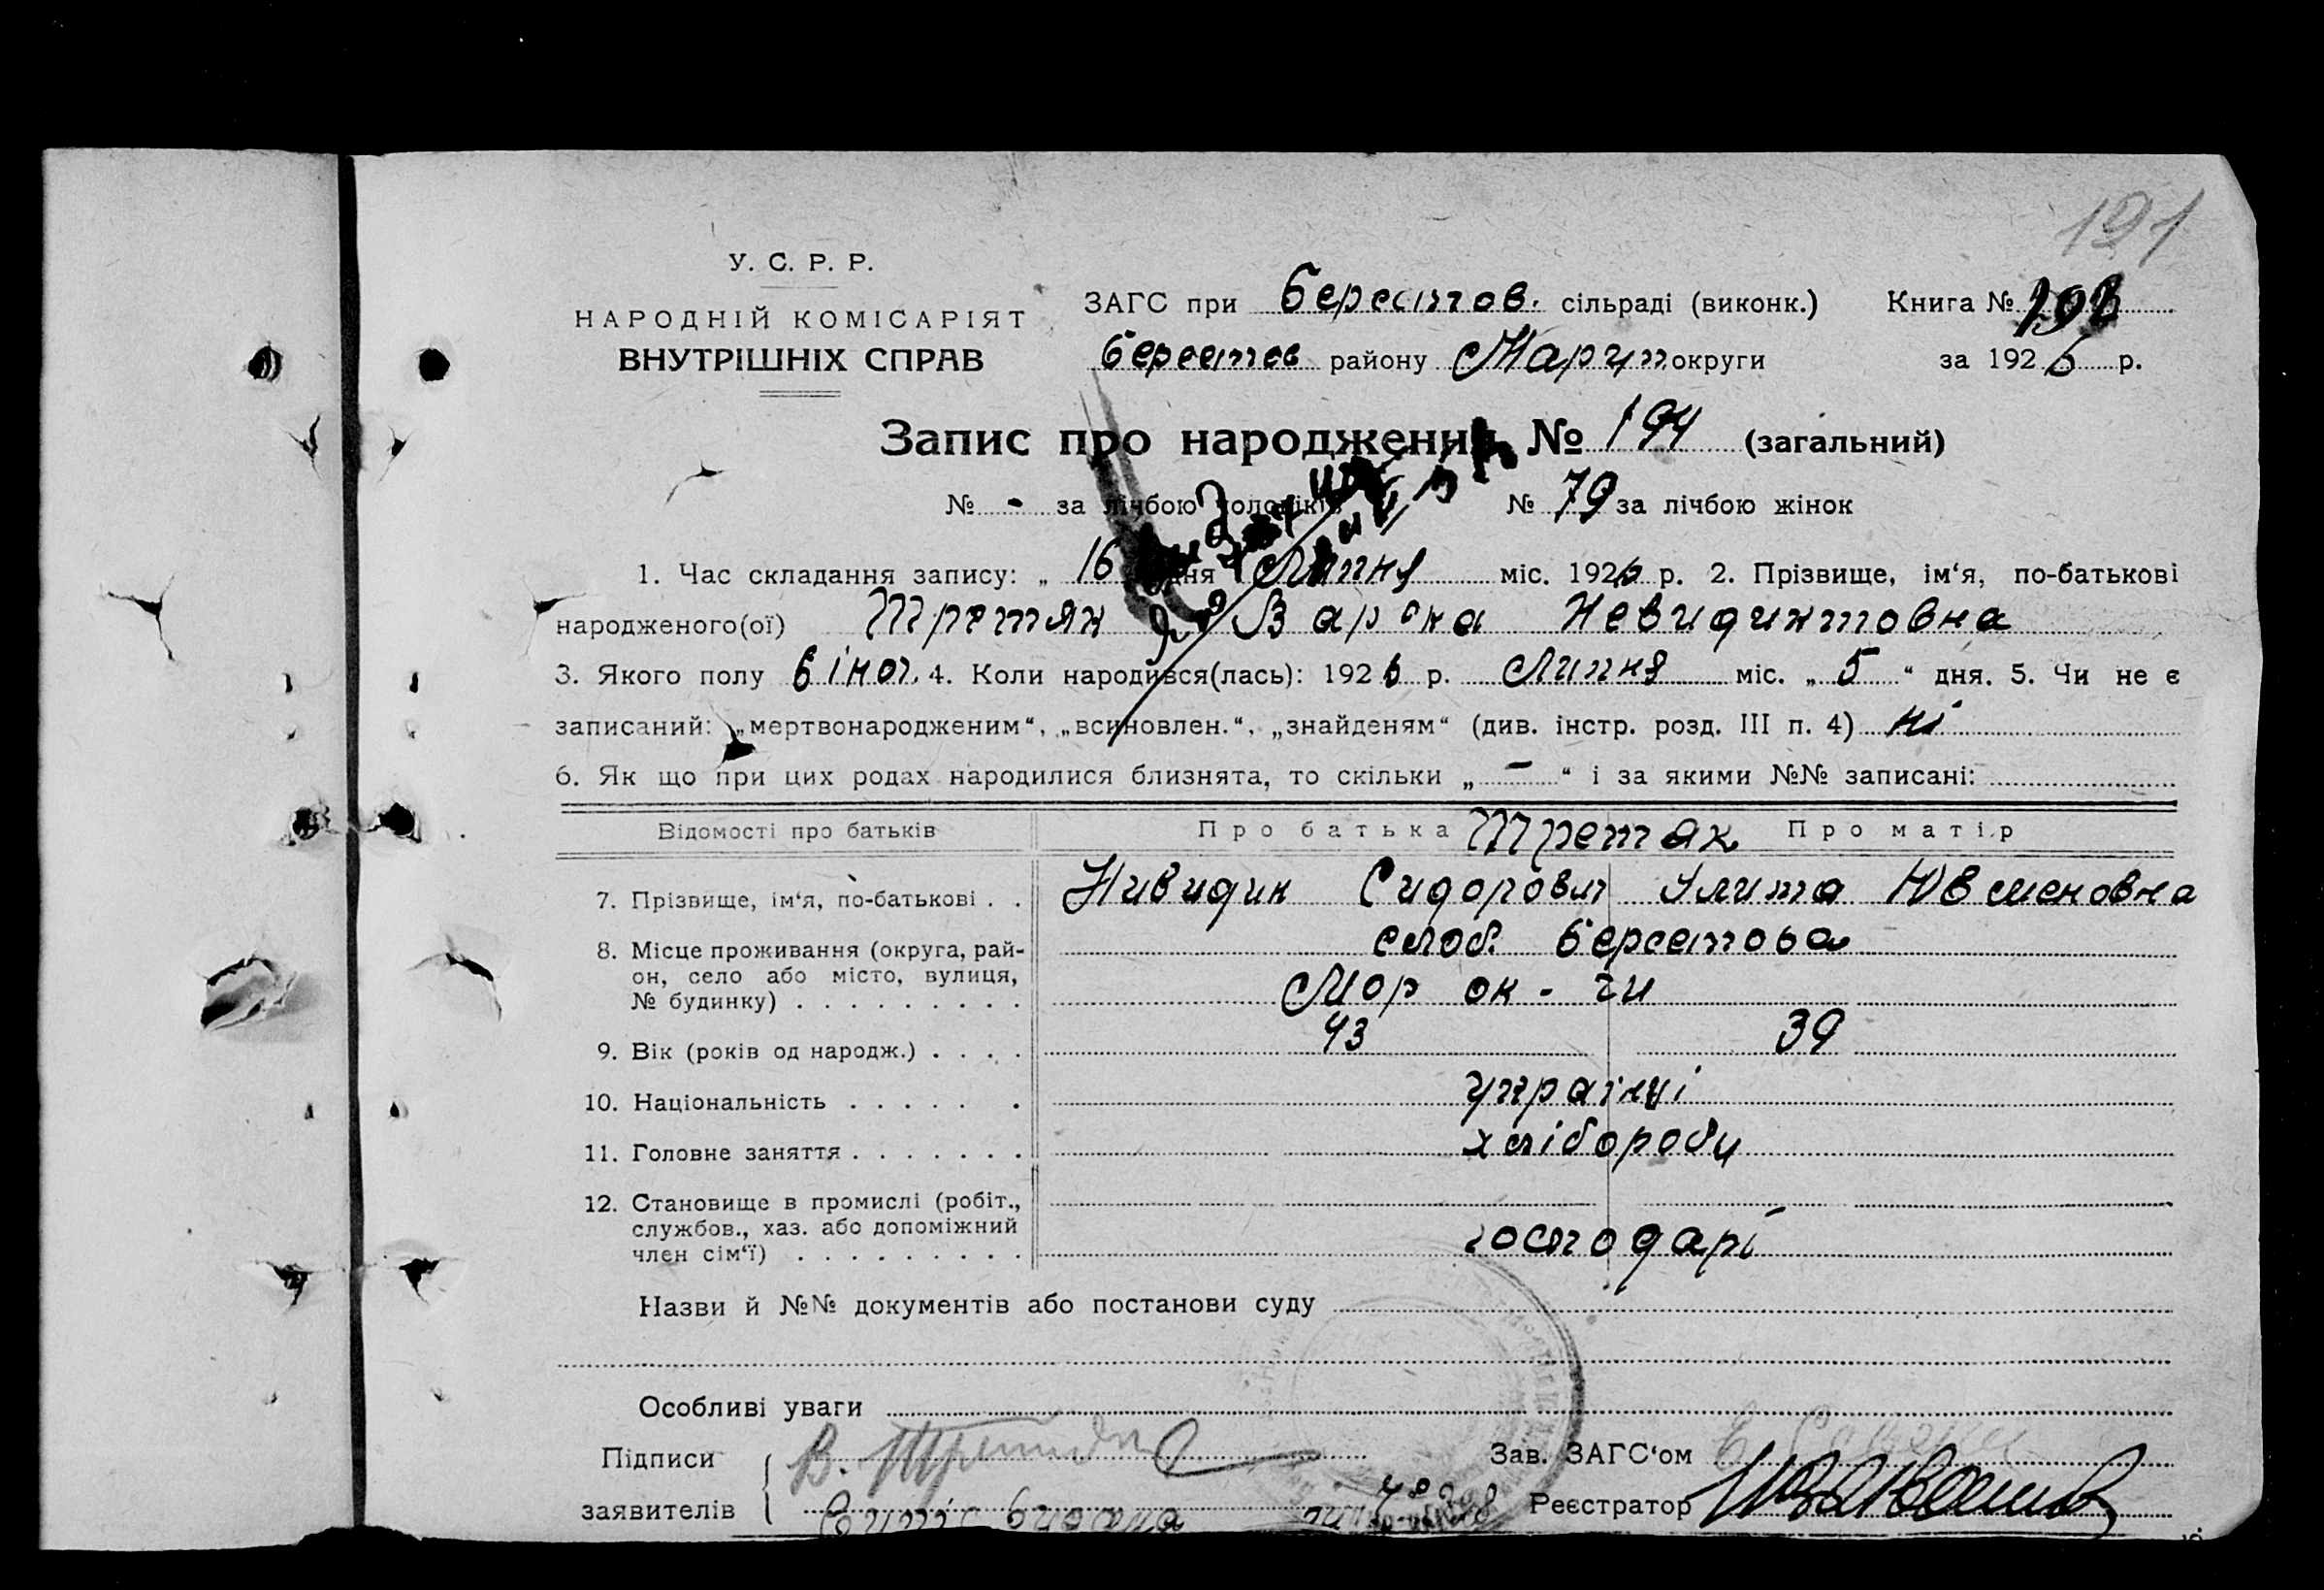 191
У. С. Р. Р.
НАРОДНІЙ КОМІСАРІЯТ
ВНУТРІШНІХ СПРАВ
ЗАГС при Берестов. сільраді (виконк.) Книга №
Берестов району Маріуп округи за 1926 р.
Запис про народження № 194 (загальний)
№ - за лічбою чоловіків № 79 за лічбою жінок
1. Час складання запису: „ 16 дня Липня міс. 1926 р. 2. Прізвище, ім‘я, по-батькові
народженого(ої) Третяк Варвка Невидиктовна
3. Якого полу жіноч. 4. Коли народився(лась): 1926 р. Липня міс. „ 5 “ дня. 5. Чи не є
записаний: „мертвонародженим“, „всиновлен.“, „знайденям“ (див. інстр. розд. III п. 4) ні
6. Як що при цих родах народилися близнята, то скільки „ — “ і за якими №№ записані:
Відомості про батьків Про батька Третяк Про матір
7. Прізвище, ім‘я, по-батькові . . Нивидик Сидорович УлитаЮвменовна
8. Місце проживання (округа, рай-
он, село або місто, вулиця,
№ будинку) . . . . . . . . .
слоб. Берестова
Мар ок - ги
9. Вік (років од народж.) . . . . 43 39
10. Національність . . . . . . українці
11. Головне заняття . . . . . . . хлібороби
12. Становище в промислі (робіт.,
службов., хаз. або допоміжний
член сім‘ї) . . . . . . . . .
господарі
Назви й №№ документів або постанови суду
Особливі уваги
Підписи
заявителів
В.
Зав. ЗАГС‘ом
Реєстратор